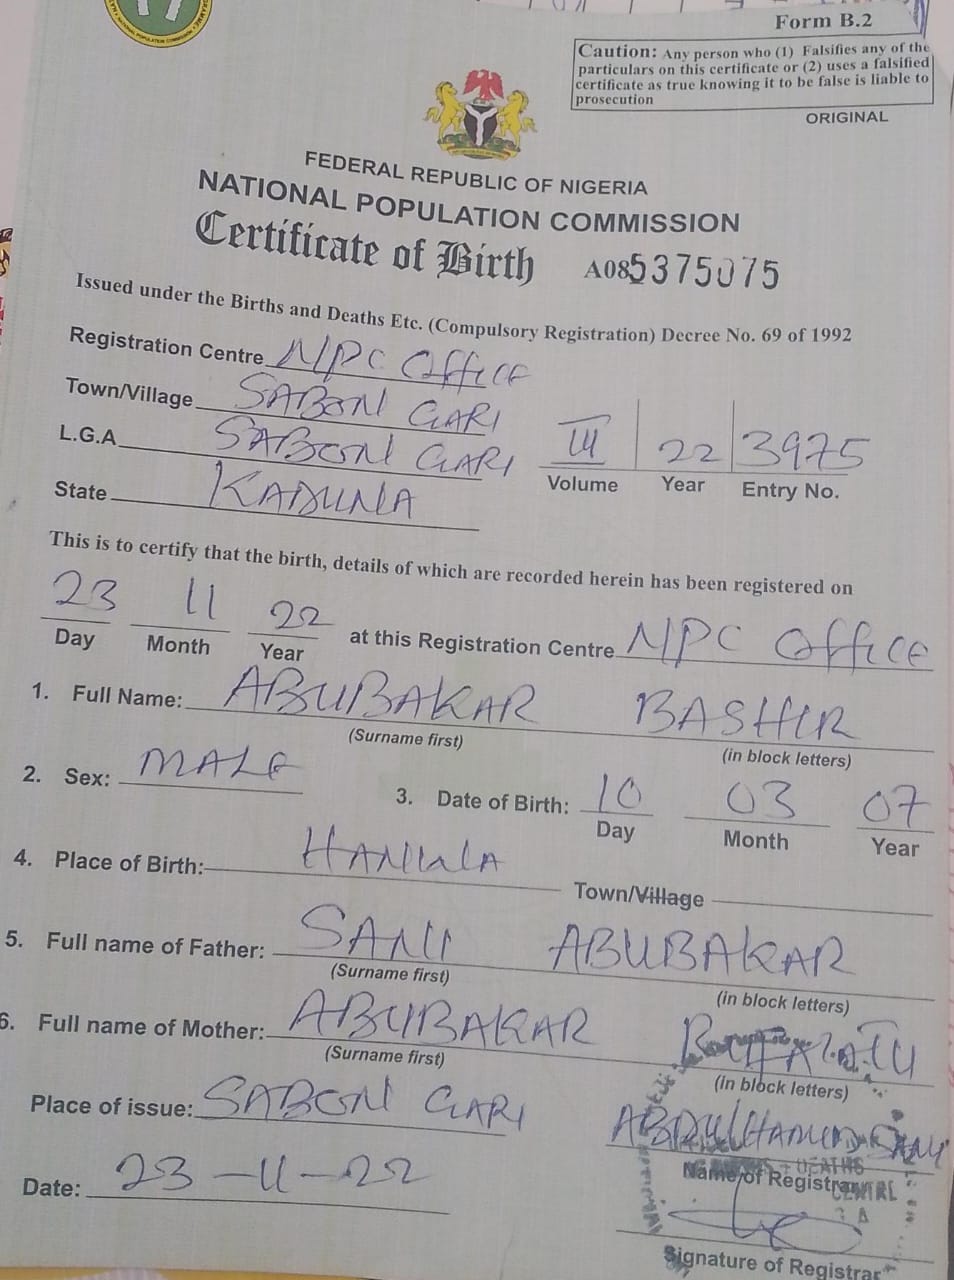 Form B.2
Caution: Any person who (1) Falsifies any of the
particulars on this certificate or (2) uses a falsified
certificate as true knowing it to be false is liable to
prosecution
ORIGINAL
FEDERAL REPUBLIC OF NIGERIA
NATIONAL POPULATION COMMISSION
Certificate of Birth A085375075
Issued under the Births and Deaths Etc. (Compulsory Registration) Decree No. 69 of 1992
Registration Centre NPC Office
Town/Village SABON GARI
L.G.A SABON GARI
III 22 3975
Volume Year Entry No.
State KADUNA
This is to certify that the birth, details of which are recorded herein has been registered on
23 11 22 at this Registration Centre NPC Office
Day Month Year
1. Full Name: ABUBAKAR BASHIR
(Surname first) (in block letters)
2. Sex: MALE
3. Date of Birth: 10 03 07
Day Month Year
4. Place of Birth: Town/Village
5. Full name of Father: SANI ABUBAKAR
(Surname first) (in block letters)
6. Full name of Mother: ABUBAKAR
(Surname first) (in block letters)
Place of issue: SABON GARI
ABDULHAMID SANI
Name of Registrar
Date: 23-11-22
Signature of Registrar